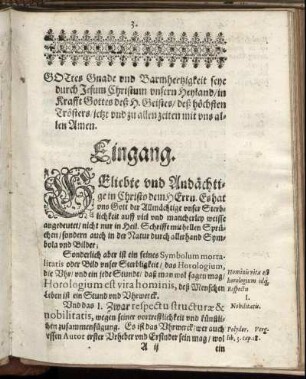 3.
GOttes Gnade vnd Barmhertzigkeit seye
durch Jesum Christum vnsern Heyland/ in
Krafft Gottes deß H. Geistes/ deß höchsten
Trösters/ jetzt vnd zu allen zeiten mit vns al-
len Amen.
Eingang.
GEliebte vnd Andächti-
ge in Christo dem HErrn. Es hat
vns Gott der Allmächtige vnser Sterb-
lichkeit auff viel vnd mancherley weisse
angedeutet/ nicht nur in Heil. Schrifft mit hellen Sprü-
chen/ sondern auch in der Natur durch allerhand Sym-
bola vnd Bilder.
Sonderlich aber ist ein feines Symbolum morta-
litatis oder Bild vnser Sterbligkeit/ das Horologium,
die Uhr/ vnd ein jede Stunde/ daß man wol sagen mag:
Horologium est vita hominis, deß Menschen
Leben ist ein Stund vnd Uhrwerck.
Hominis vita est
horologium idq;
respectu
Vnd das 1. Zwar respectu structuræ &
nobilitatis, wegen seiner vortrefflichkeit vnd künstli-
chen zusammenfügung. Es ist das Uhrwerck/ wer auch
dessen Autor erster Urheber vnd Erfinder sein mag/ wol
I.
Nobilitatis.
Polydor. Verg.
lib. 3. cap. 18.
A ij
ein